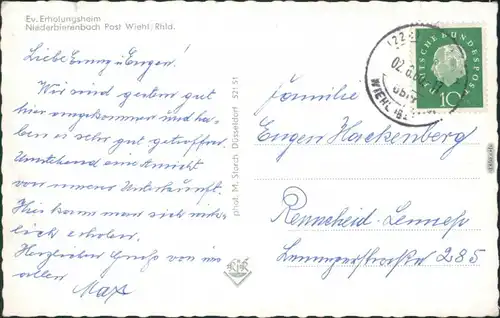 Ev. Erholungsheim
Niederbierenbach Post Wiehl, Rhld.
Liebe Emmy u. Eugen!
Wir sind gestern gut
hier angekommen und ha-
ben es sehr gut getroffen.
Umstehend eine Ansicht
von unserer Unterkunft.
Hier kann man sich wirk-
lich erholen.
Herzlichen Gruß von uns
allen
Max
phot. M. Storch, Düsseldorf 52151
DEUTSCHE BUNDESPOST
10
02.6.
WIEHL
Familie
Eugen Hackenberg
Remscheid-Lennep
Lenneperstraße 285